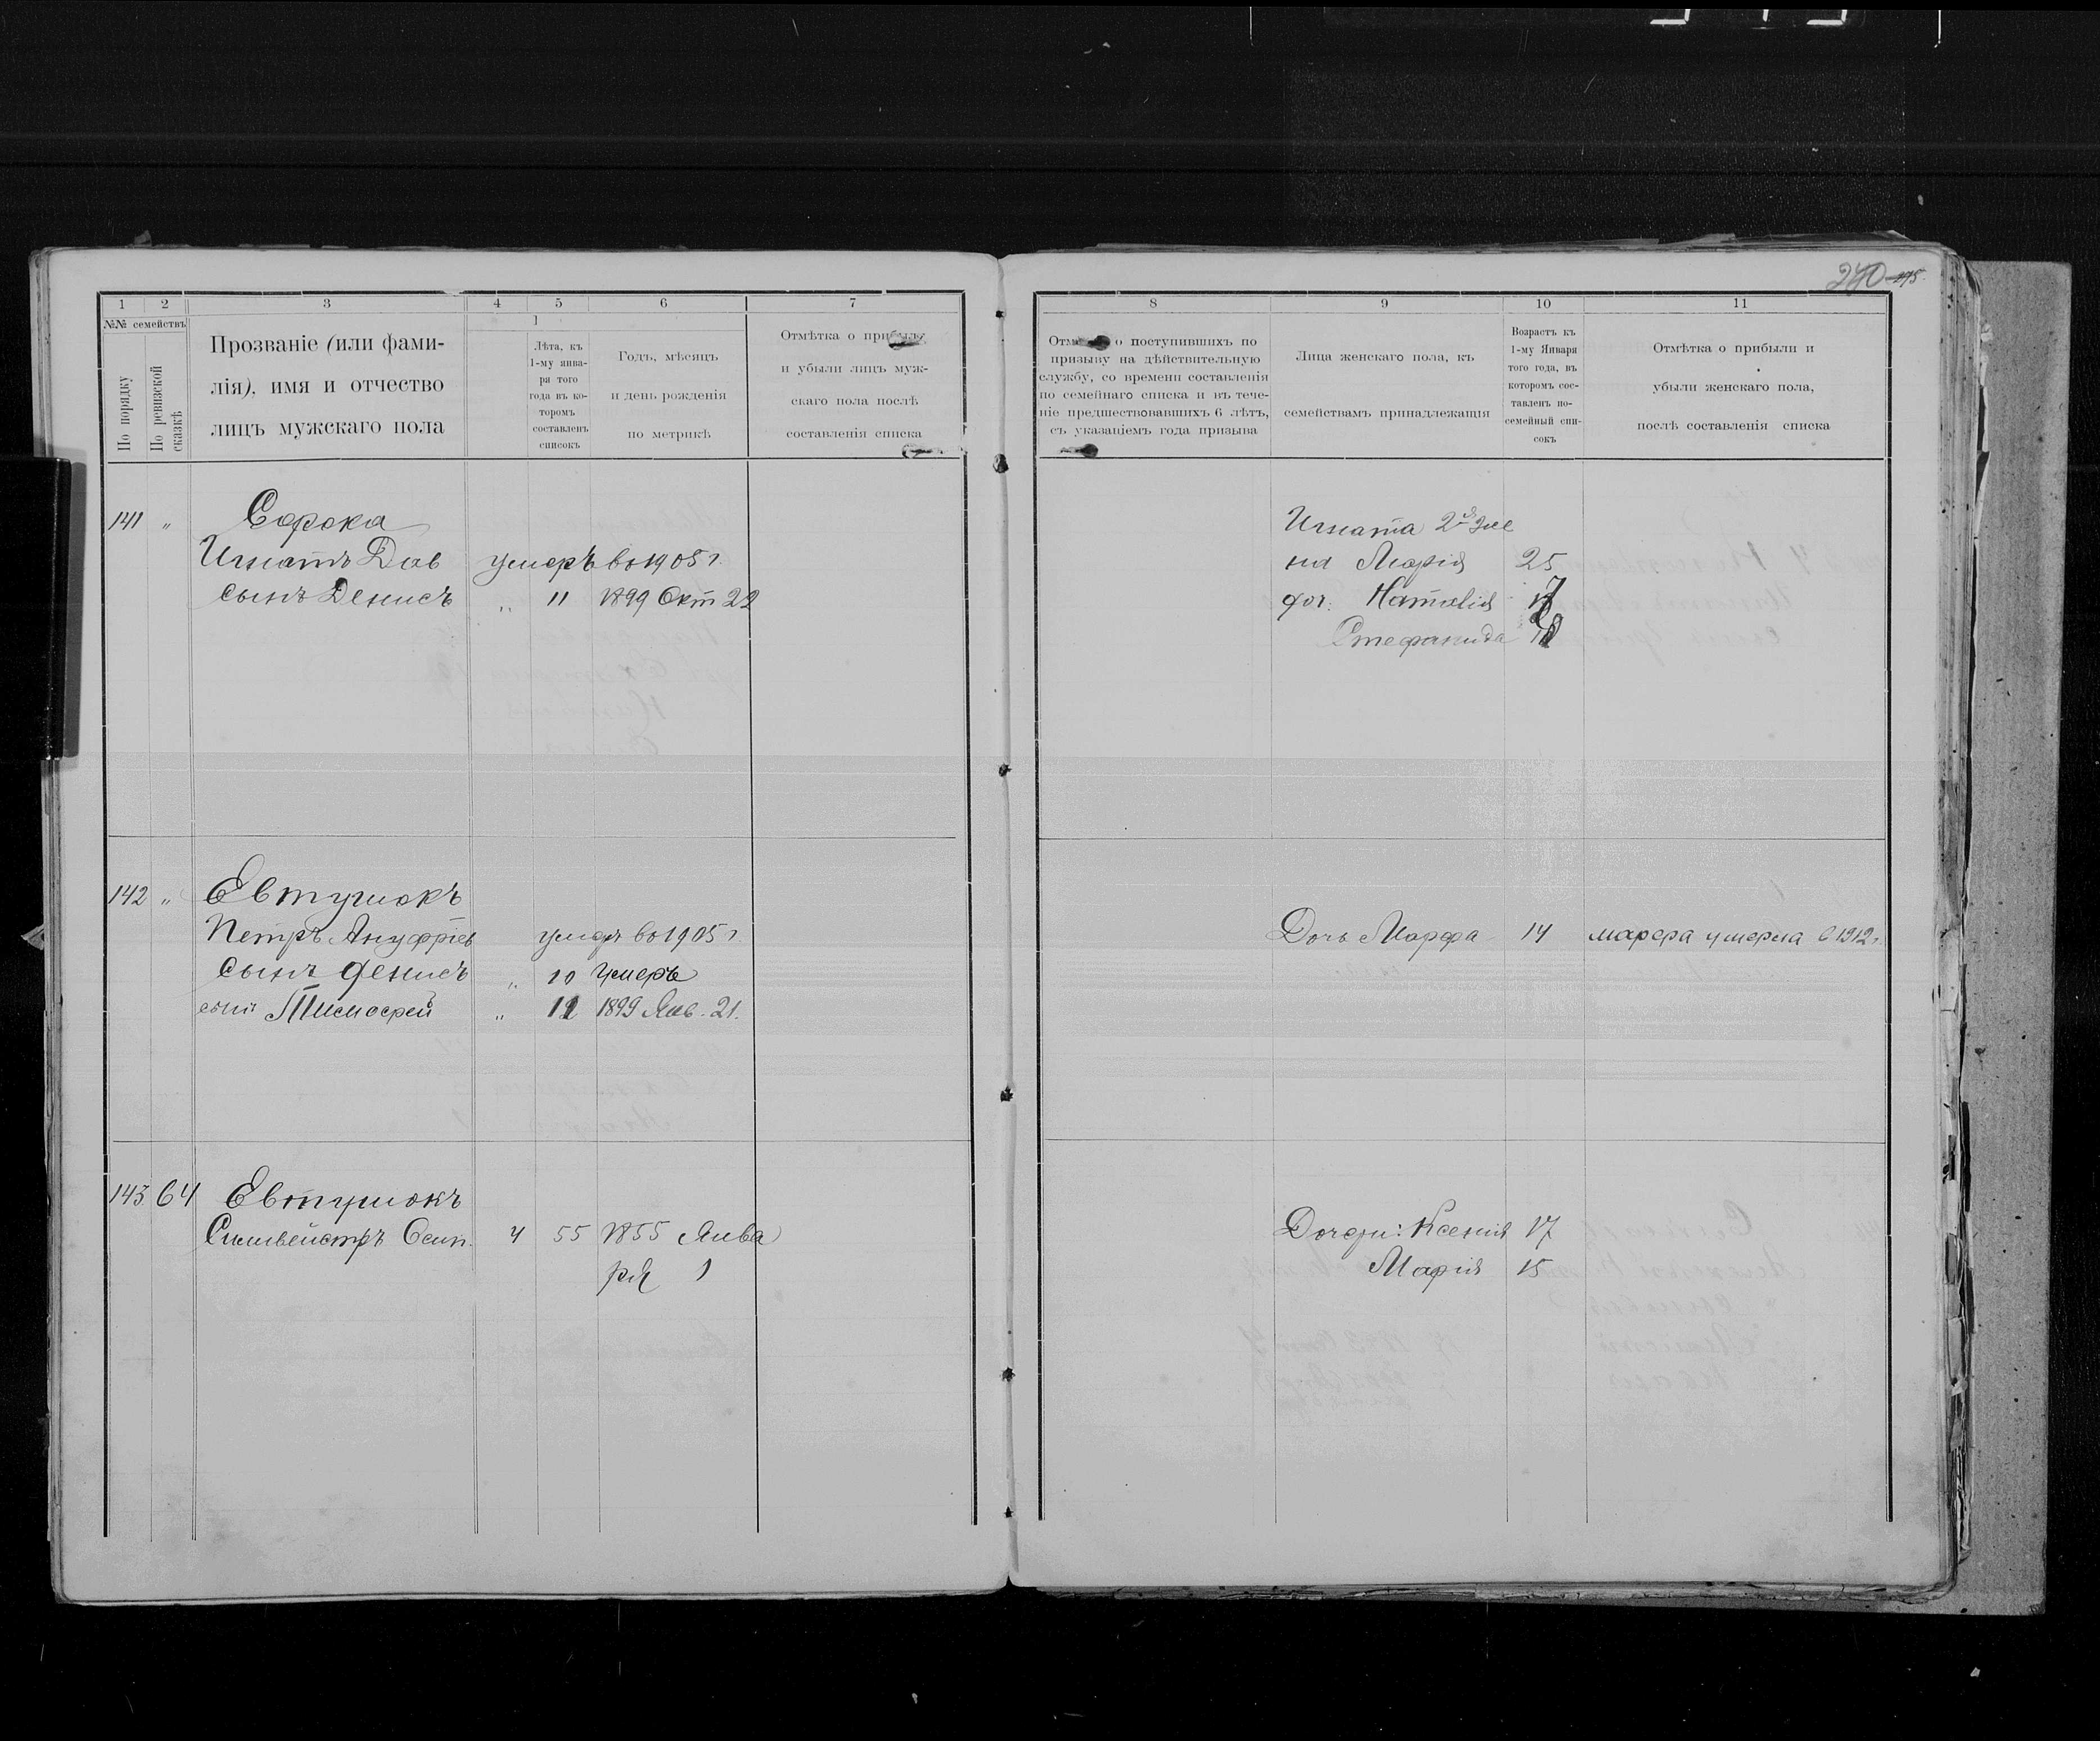 240 195
1 2 3 4 5 6 7
№№ семействъ
По порядку
По ревизской сказкѣ
Прозваніе (или фами-
лія), имя и отчество
лицъ мужскаго пола
1
Лѣта, къ
1-му янва-
ря того
года въ ко-
торомъ
составленъ
списокъ
Годъ, мѣсяцъ
и день рожденія
по метрикѣ
Отмѣтка о прибыли
и убыли лицъ муж-
скаго пола послѣ
составленія списка
141 " Сорока
Игнатъ Дав умеръ во 1905 г.
сынъ Денисъ " 11 1899 Окт 22
142 " Евтушокъ
Петръ Ануфріев умеръ во 1905 г.
Сынъ Денисъ " 10 умеръ
сынъ Тимофей " 11 1899 Янв. 21.
143 64 Евтушокъ
Сильвейстръ Осип. 4 55 1855 Янва
ря 1
8 9 10 11
о поступившихъ по
призыву на дѣйствительную
службу, со времени составленія
по семейнаго списка и въ тече-
ніе предшествовавшихъ 6 лѣтъ,
съ указаніемъ года призыва
Лица женскаго пола, къ
семействамъ принадлежащія
Возрастъ къ
1-му Января
того года, въ
которомъ сос-
тавленъ по-
семейный спи-
сокъ
Отмѣтка о прибыли и
убыли женскаго пола,
послѣ составленія списка
Игната 2я же
на Марія 25
доч. Наталія
Стефанида
Дочь Марфа 14 марфа умерла в 1912 г.
Дочери: Ксенія 17
Марія 15